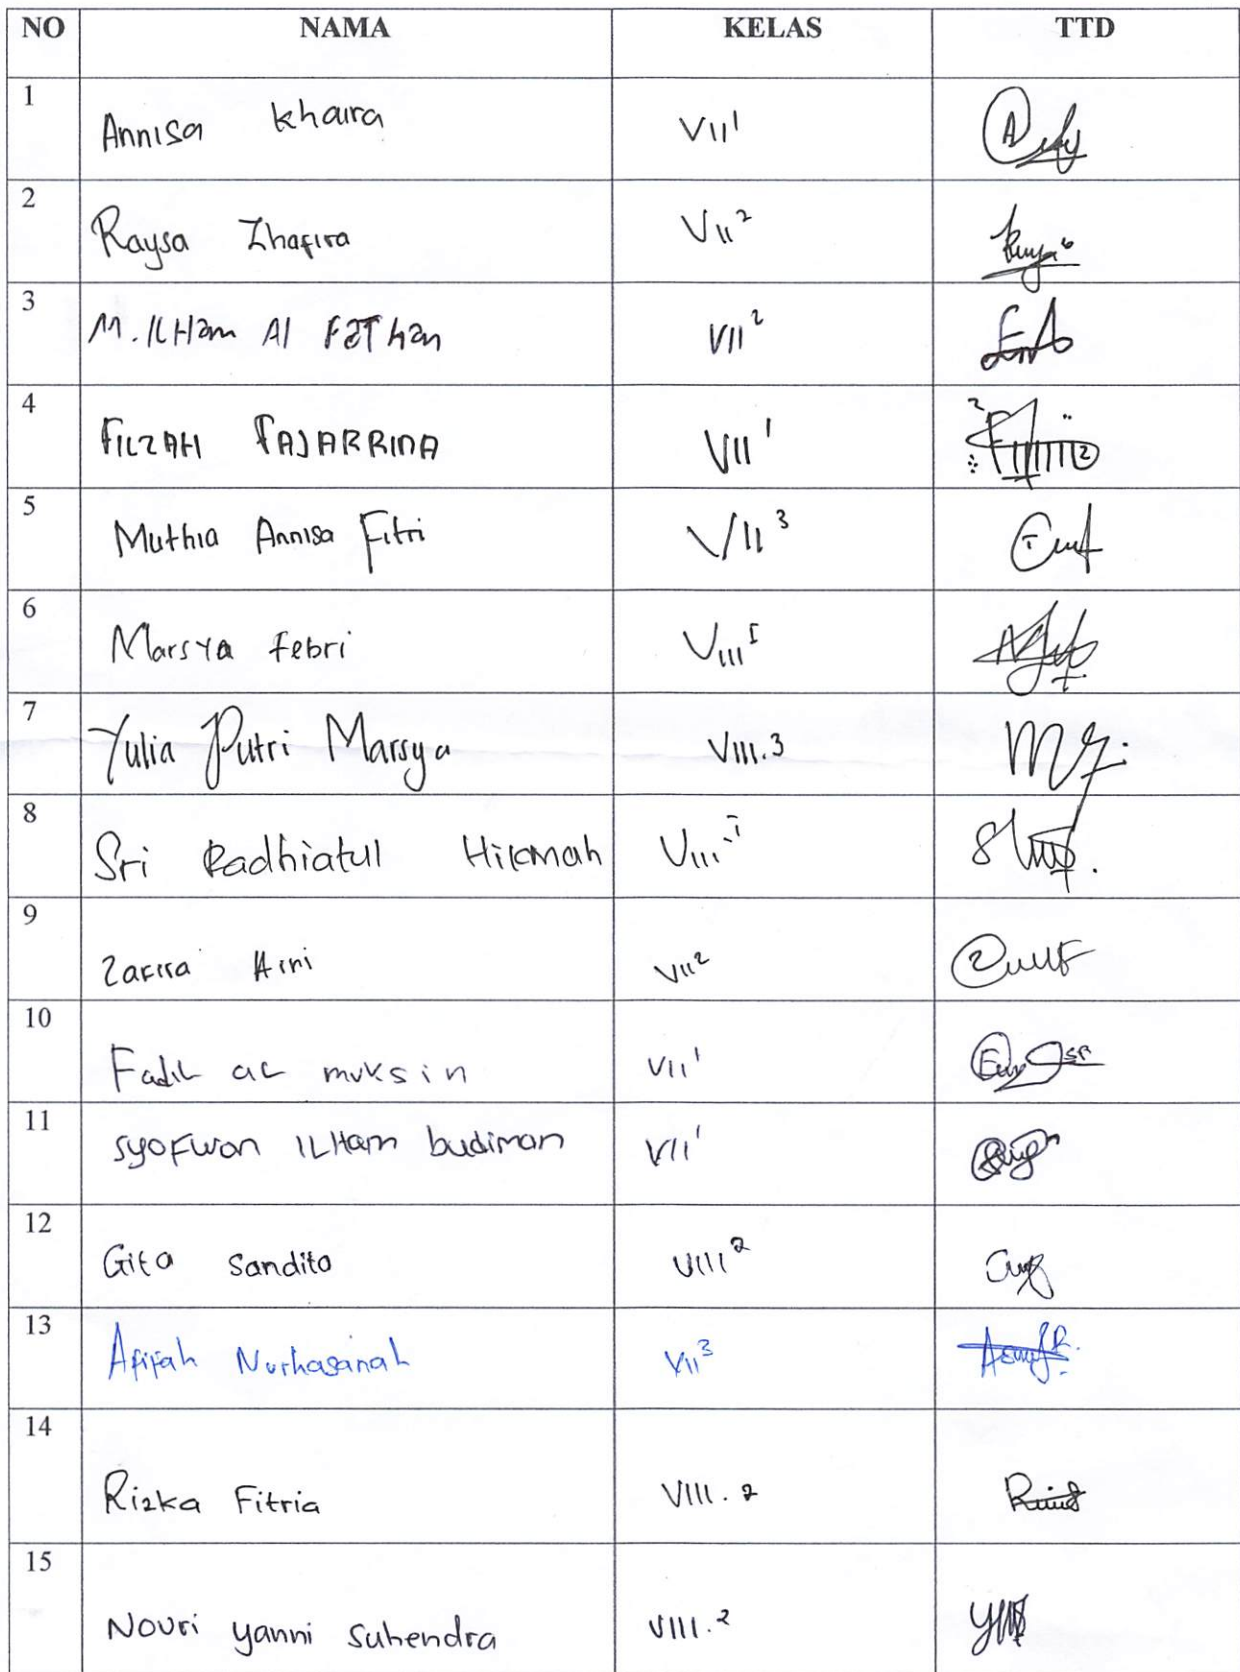 NO NAMA KELAS TTD
1 Annisa khaira VII¹
2 Raysa Zhafira VII²
3 M. ILHam Al FaT han VII²
4 FILZAH FAJARRINA VII¹
5 Muthia Annisa Fitri VII³
6 Marsya Febri VIII¹
7 Yulia Putri Marsya VIII.3
8 Sri Radhiatul Hikmah VIII.¹
9 Zafira Aini VII²
10 Fadil al muksin VII¹
11 syofwan ILHam budiman VII¹
12 Gita Sandita VIII²
13 Afifah Nurhasanah VII³
14 Rizka Fitria VIII.2
15 Nouri yanni Suhendra VIII.²